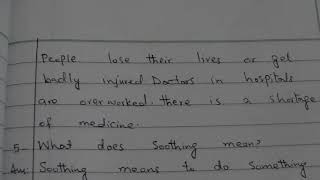 People lose their lives or get
badly injured Doctors in hospitals
are overworked. there is a shortage
of medicine.
5. What does Soothing mean?
Ans: Soothing means to do Something